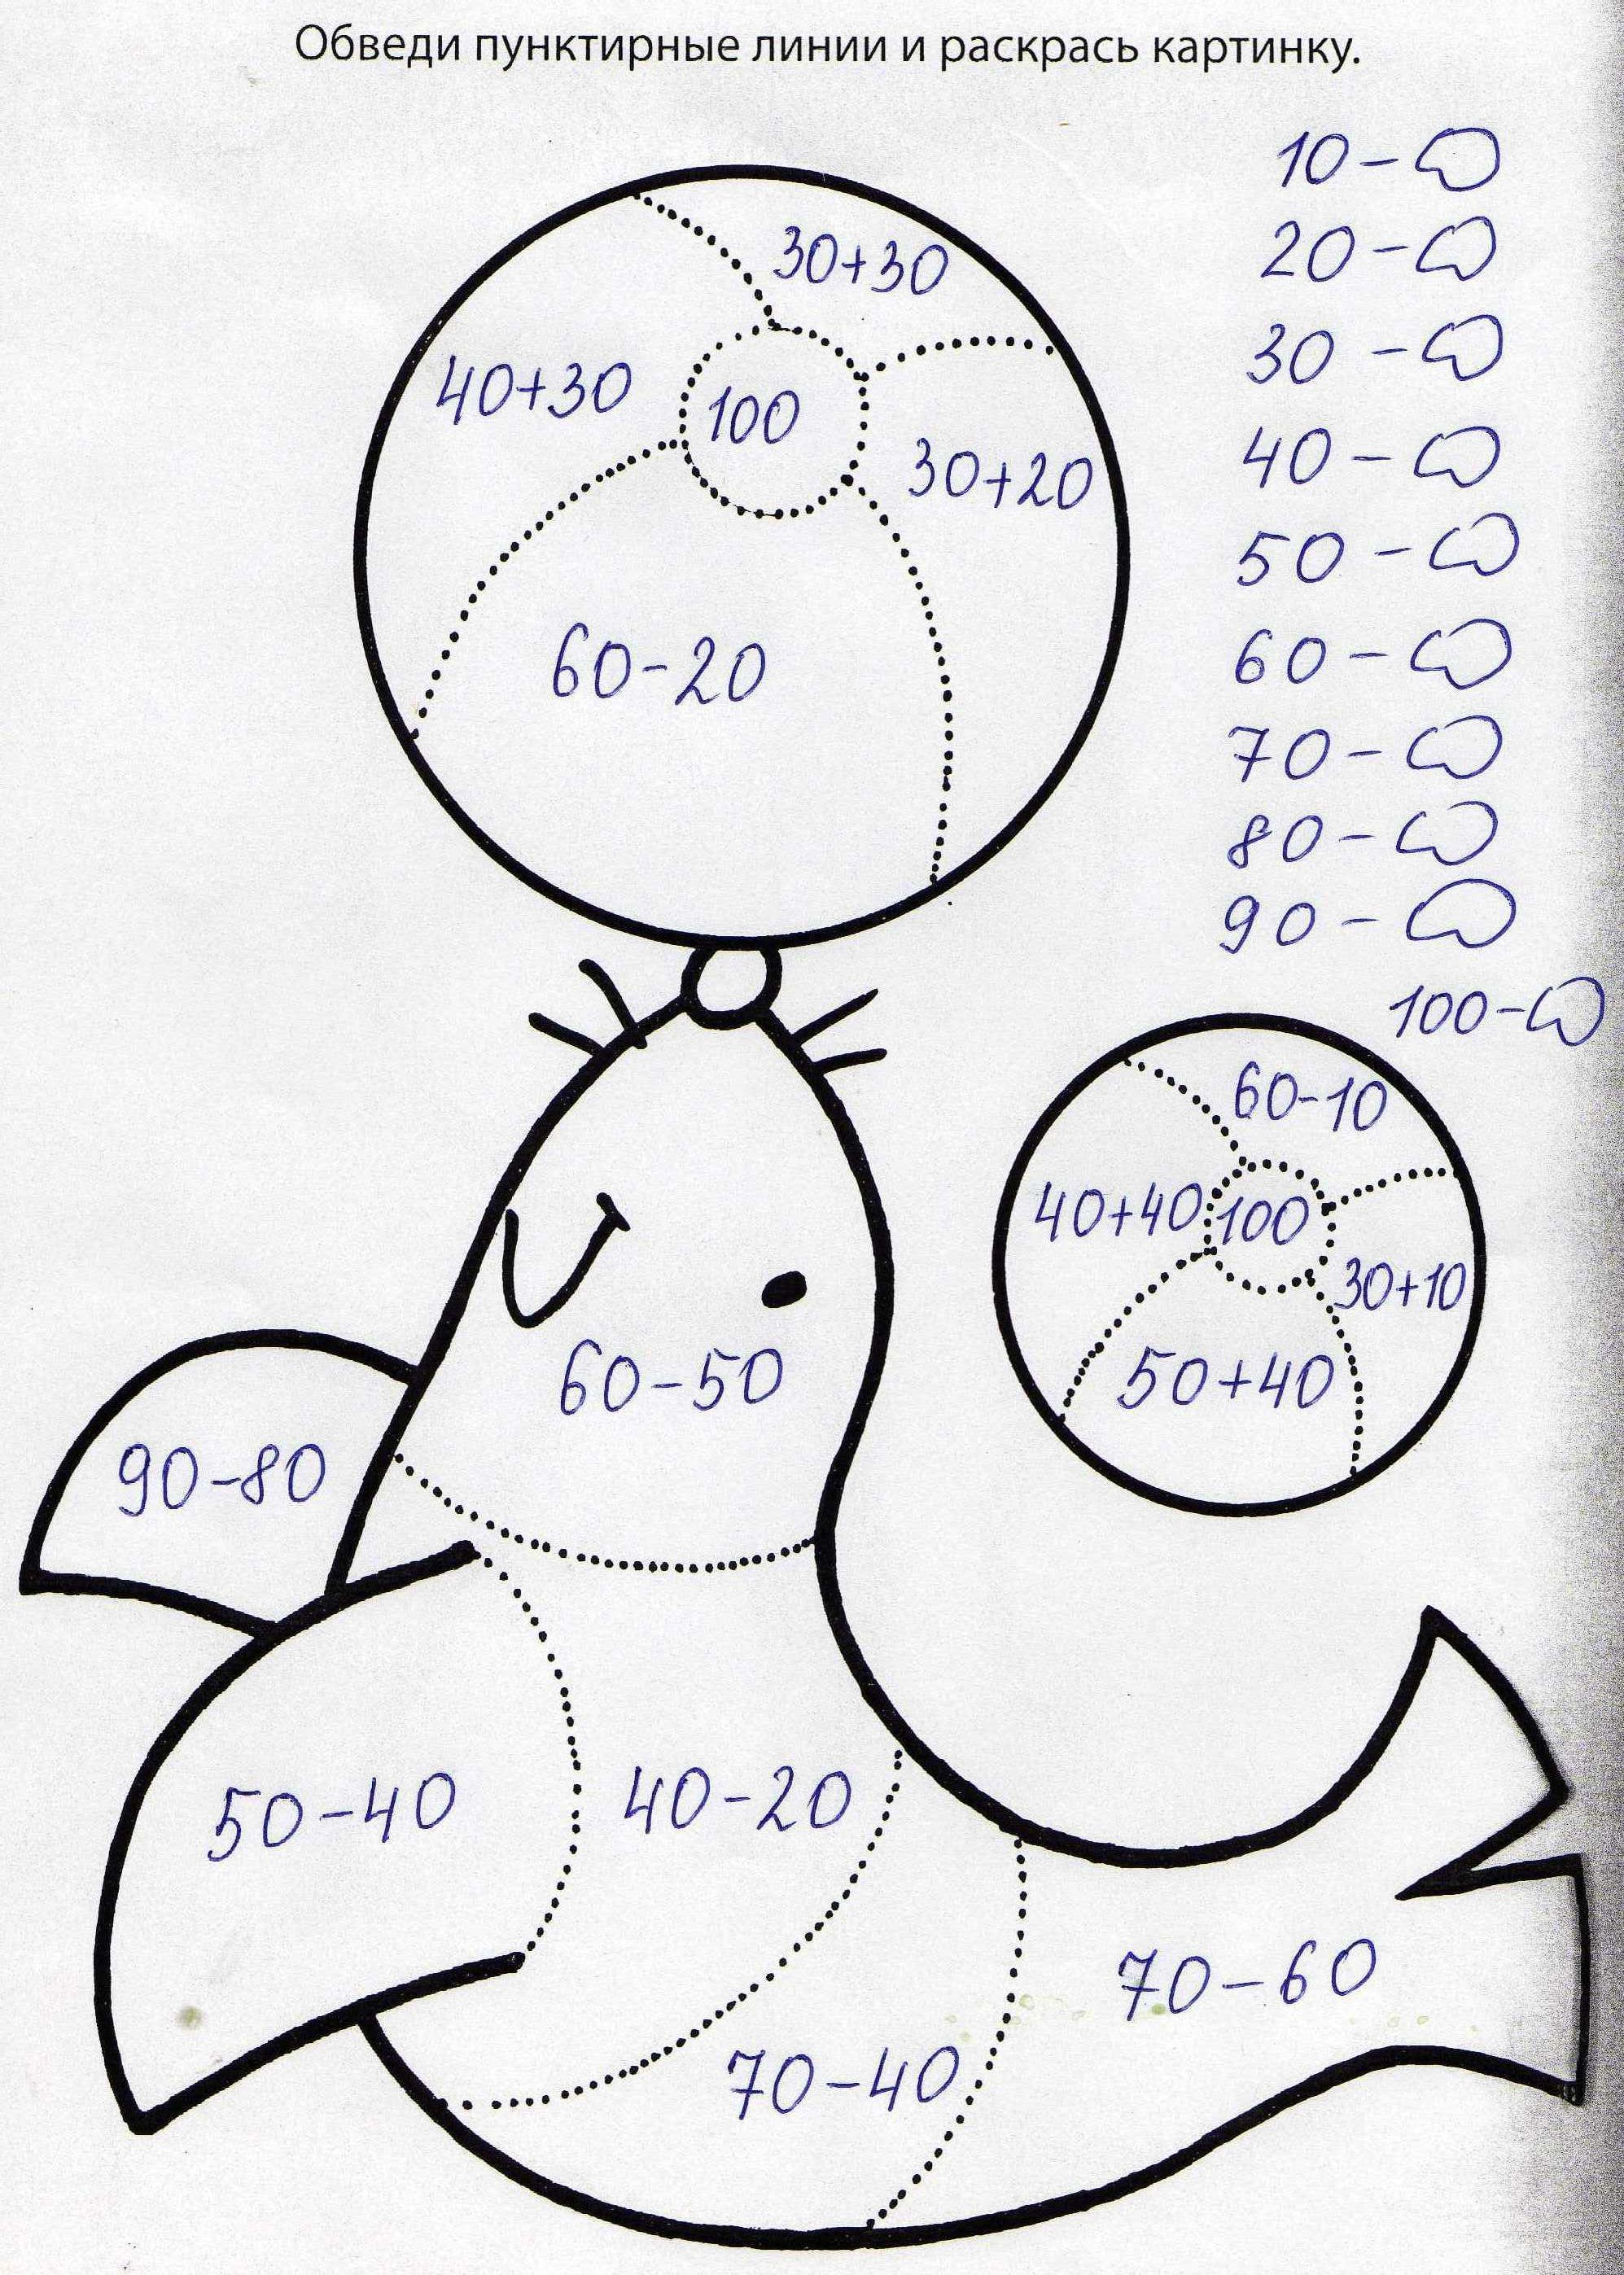 Обведи пунктирные линии и раскрась картинку.
10 -
20 -
30 -
40 -
50 -
60 -
70 -
80 -
90 -
100 -
30+30
40+30
100
30+20
60-20
60-10
40+40
100
30+10
50+40
60-50
90-80
50-40
40-20
70-60
70-40